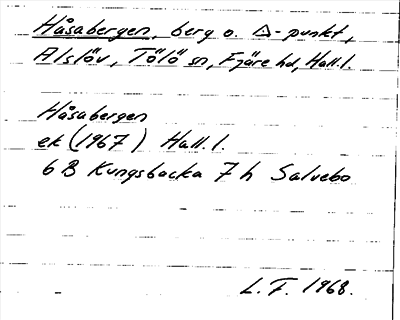 Håsabergen, berg o. △-punkt,
Alslöv, Tölö sn, Fjäre hd, Hall.l.
Håsabergen
ek (1967) Hall.l.
6 B Kungsbacka 7 h Salvebo
L.F. 1968.